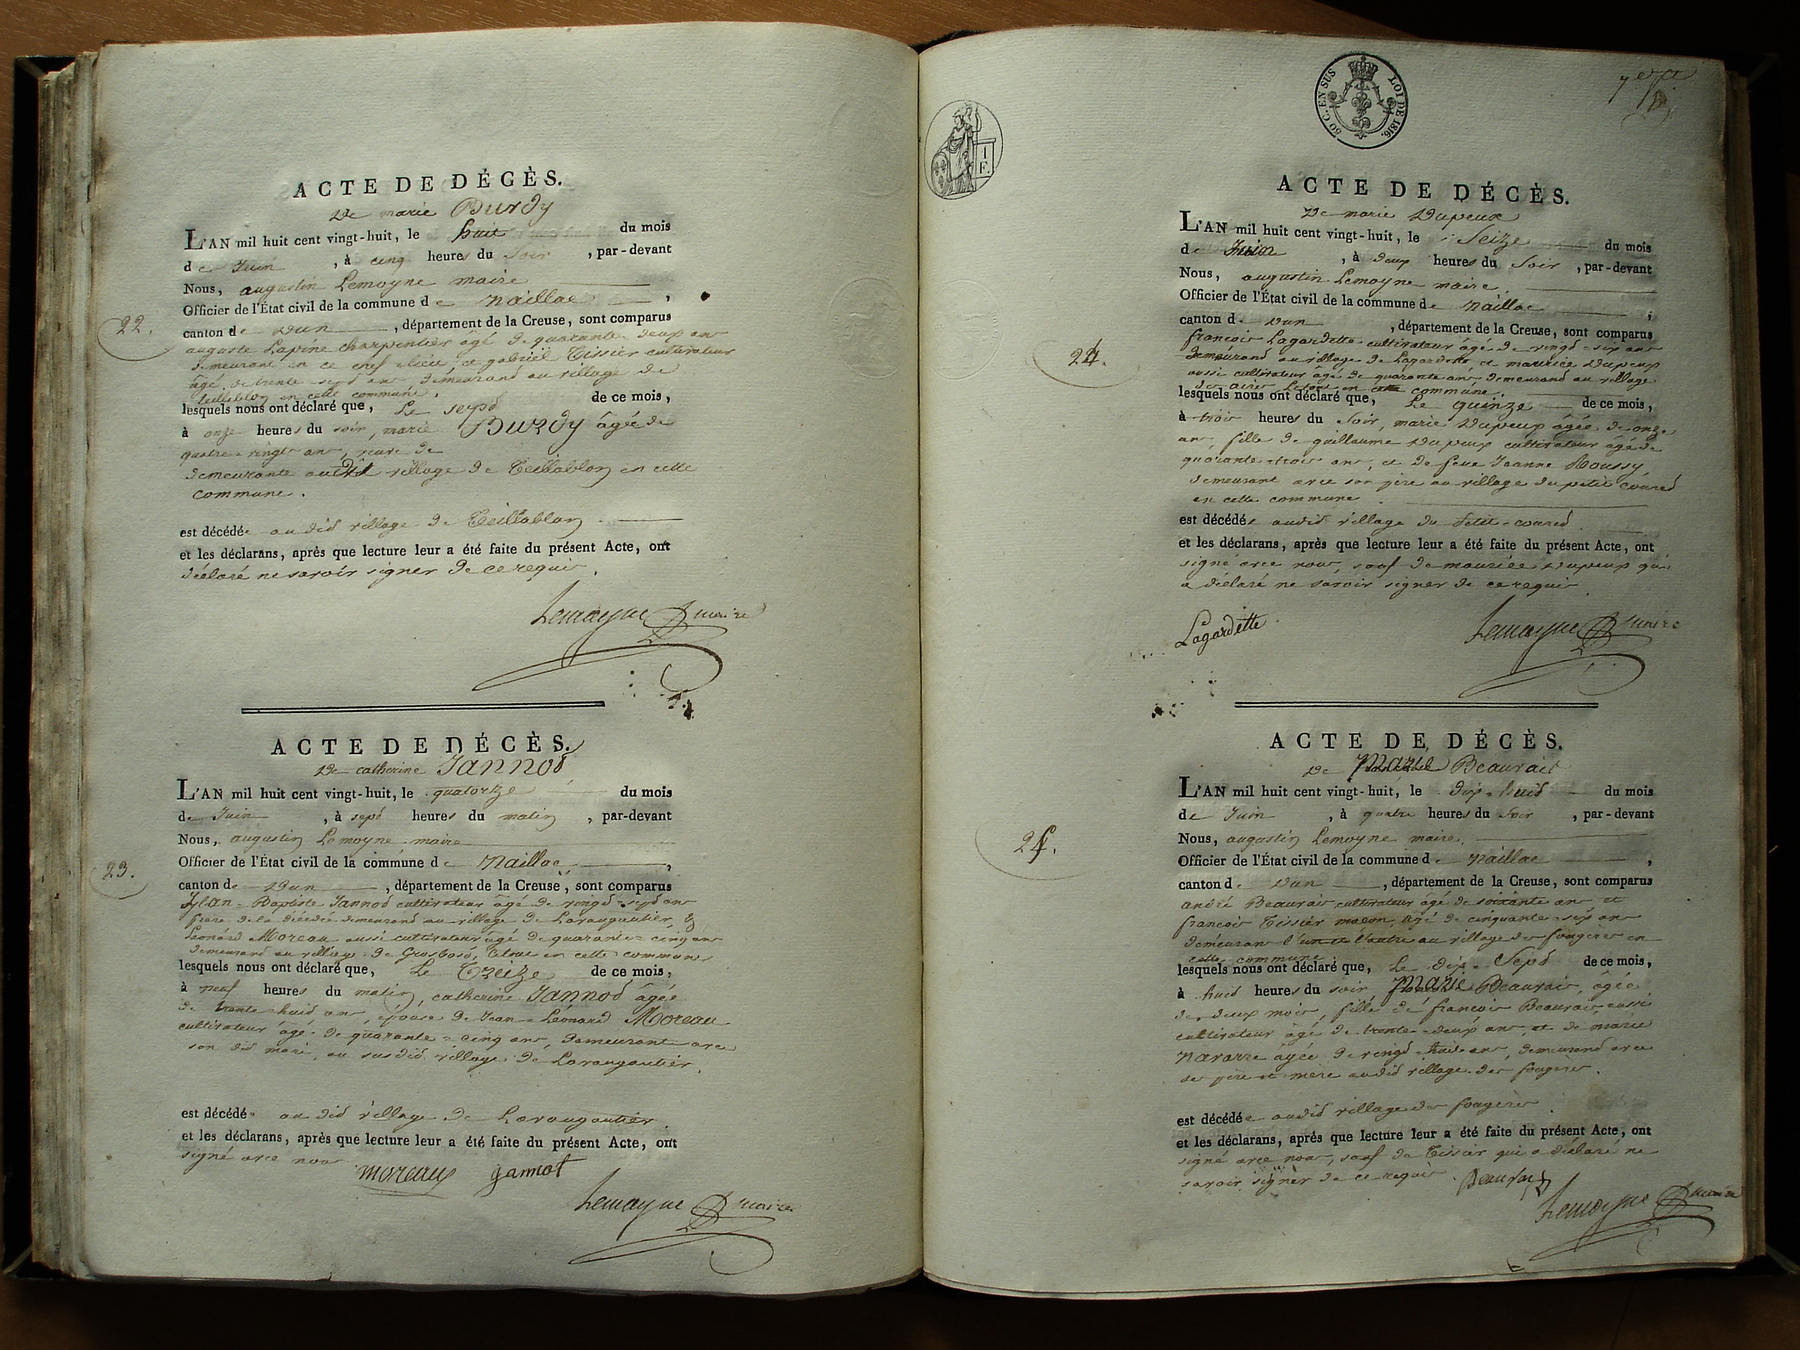 ACTE DE DÉCÈS.
De marie Burdy
L'AN mil huit cent vingt-huit, le huit du mois
de Juin, à cinq heures du soir, par-devant
Nous, augustin Lemoyne maire
Officier de l'État civil de la commune de naillac,
22.
canton de Dun, département de la Creuse, sont comparus
auguste Lapine charpentier âgé de quarante deux ans
demeurant en ce chef-lieu, et gabriel Tissier cultivateur
âgé de trente sept ans, demeurand au village de
Teillablon en cette commune.
lesquels nous ont déclaré que, Le sepd de ce mois,
à onze heures du soir, marie Burdy âgée de
quatre-vingt ans, veuve de
demeurante audit village de Teillablon en cette
commune.
est décédée au did village de Teillablon
et les déclarans, après que lecture leur a été faite du présent Acte, ont
déclaré ne savoir signer de ce requis.
Lemoyne maire
ACTE DE DÉCÈS.
De catherine Jannod
L'AN mil huit cent vingt-huit, le quatorze du mois
de Juin, à sepd heures du matin, par-devant
Nous, augustin Lemoyne maire
Officier de l'État civil de la commune de naillac,
23.
canton de Dun, département de la Creuse, sont comparus
Jean-Baptiste Jannod cultivateur âgé de vingd-sepd ans
frère de la décédée demeurand au village de Lavaugautier, &
Léonard Moreau aussi cultivateur âgé de quarante-cinq ans
demeurand au village de Grosbost, Tous en cette commune
lesquels nous ont déclaré que, Le Treize de ce mois,
à neuf heures du matin, catherine Jannod âgée
de trente huid ans, épouse de Jean-Léonard Moreau
cultivateur âgé de quarante-cinq ans, demeurant avec
son did mari, au susdid village de Lavaugautier.
est décédée au did village de Lavaugautier.
et les déclarans, après que lecture leur a été faite du présent Acte, ont
signé avec nous
moreau jannot
Lemoyne maire
30 C. EN SUS LOI DE 1816.
ACTE DE DÉCÈS.
De marie Dupeux
L'AN mil huit cent vingt-huit, le Seize du mois
de Juin, à deux heures du Soir, par-devant
Nous, augustin Lemoyne maire
Officier de l'État civil de la commune de naillac,
canton de Dun, département de la Creuse, sont comparus
24.
françois Lagardette cultivateur âgé de vingd-six ans
demeurand au village de Lagardette et maurice Dupeux
aussi cultivateur âgé de quarante ans, demeurand au village
en cette commune
lesquels nous ont déclaré que, Le quinze de ce mois,
à trois heures du Soir, marie Dupeux âgée de onze
ans, fille de guillaume Dupeux cultivateur âgé de
quarante-trois ans, et de feue Jeanne Roussy
demeurant avec son père au village du petit coured
en cette commune
est décédée audid village du Petit-coured
et les déclarans, après que lecture leur a été faite du présent Acte, ont
signé avec nous, sauf de maurice Dupeux qui
a déclaré ne savoir signer de ce requis
Lagardette Lemoyne maire
ACTE DE DÉCÈS.
De Marie Beauvais
L'AN mil huit cent vingt-huit, le dix-huid du mois
de Juin, à quatre heures du soir, par-devant
Nous, augustin Lemoyne maire.
25.
Officier de l'État civil de la commune de naillac,
canton de Dun, département de la Creuse, sont comparus
andré Beauvais cultivateur âgé de soixante ans et
françois Tissier maçon, âgé de cinquante-six ans
demeurans l'un et l'autre au village des fougères en
cette commune
lesquels nous ont déclaré que, le dix-Sepd de ce mois,
à huid heures du soir Marie Beauvais, âgée
de deux mois, fille de françois Beauvais aussi
cultivateur âgé de trente-deux ans et de marie
navarre âgée de vingd-huit ans, demeurand avec
ses père et mère audid village des fougères.
est décédée audid village des fougères
et les déclarans, après que lecture leur a été faite du présent Acte, ont
signé avec nous, sauf de Tissier qui a déclaré ne
savoir signer de ce requis. Beauvais
Lemoyne maire